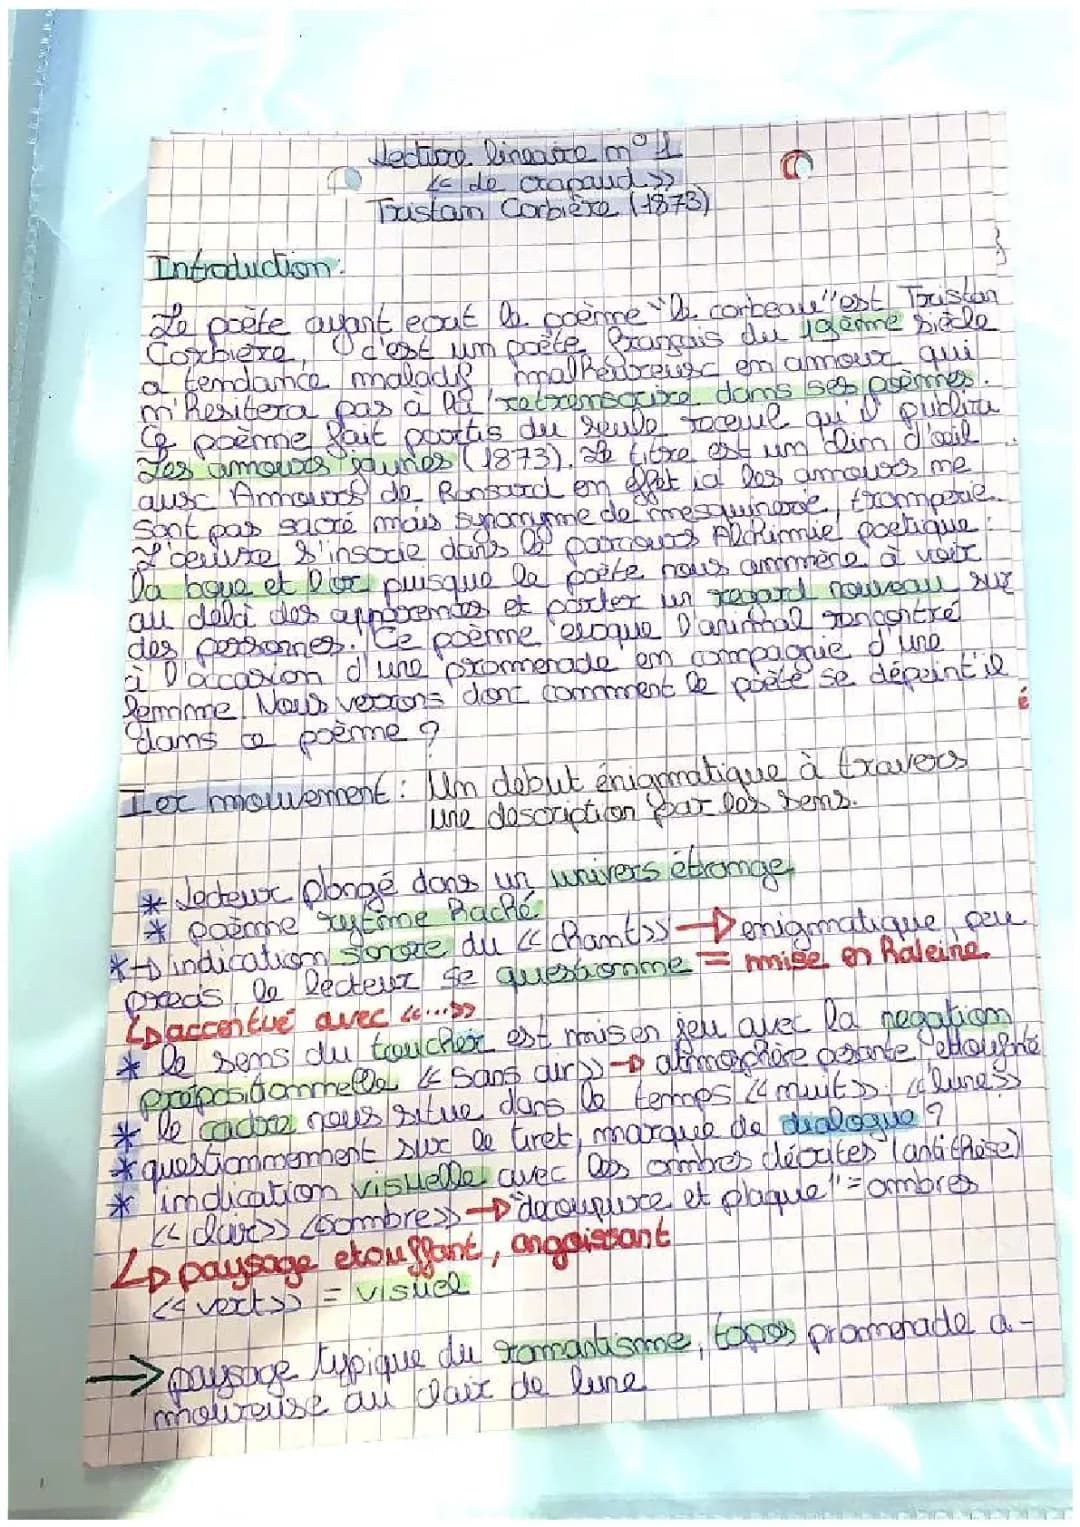 Lecture lineaire n° 1
<< Le crapaud >>
Tristan Corbière (1873)
Introduction:
Le poète ayant ecrit le poème "le corbeau" est Tristan
Corbière, c'est un poète français du 19ème siècle
a tendance maladif, malheureux en amour qui
n'hesitera pas à la retranscrire dans ses poèmes.
Ce poème fait partis du seule receuil qu'il publira
Les amours jaunes (1873). Le titre est un clin d'œil
aux Amours de Ronsard en effet ici les amours ne
sont pas sacré mais synonyme de mesquinerie, tromperie.
L'œuvre s'inscrie dans le parcours Alchimie poetique :
la boue et l'or puisque le poète nous ammène à voir
au delà des apparences et porter un regard nouveau sur
des personnes. Ce poème evoque l'animal rencontré
à l'occasion d'une promenade en compagnie d'une
femme. Nous verrons dont comment le poète se dépeint'il
dans ce poème ?
é
Ier mouvement : Un debut énigmatique à travers
une description par les sens.
* Lecteur plongé dans un univers étrange
* poème rytme haché
*→ indication sonore du << chant >> → enigmatique, peu
precis, le lecteur se questionne = mise en haleine
↳ accentué avec <<...>>
* le sens du toucher est mis en jeu avec la negation
prépositionnelle << sans air >> → atmosphère pesante, etouffante
* le cadre nous situe dans le temps << nuit >>, << lune >>
* questionnement sur le tiret, marque de dialogue ?
* indication visuelle avec les ombres décrites (antithèse)
<< clair >> << sombre >> → "decoupure et plaque" = ombres
↳ paysage etouffant, angoissant
<< vert >> = visuel
→ paysage typique du romantisme, topos promenade a-
moureuse au clair de lune